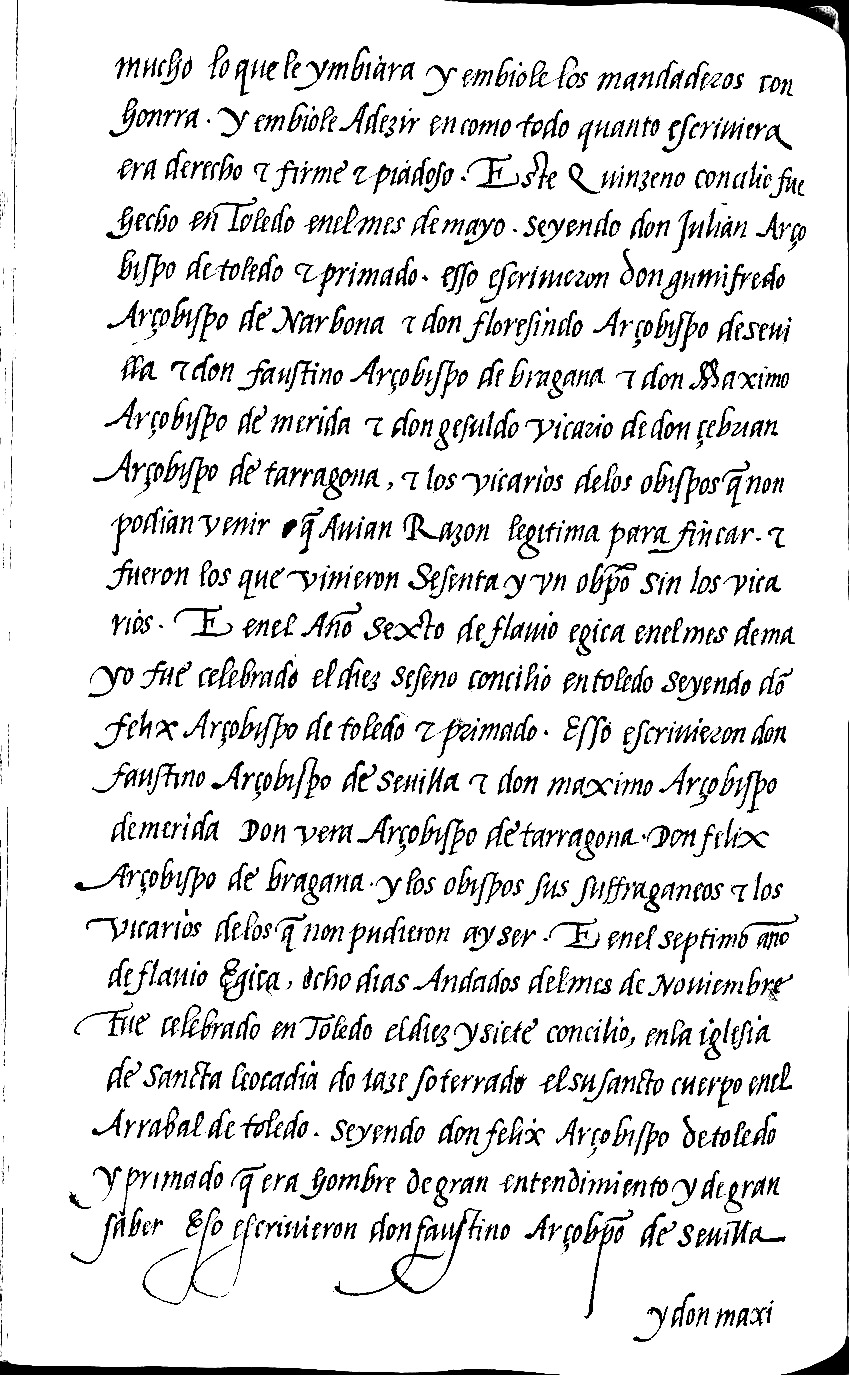 mucho lo que le ymbiara y embiole los mandaderos con
honrra . y embiole Adezir encomo todo quanto escriuiera
era derecho & firme & piadoso . Este Quinzeno concilio fue
hecho en Toledo enel mes de mayo . seyendo don Julian Arço
bispo de toledo & primado . esso escriuieron don gumifredo
Arçobispo de Narbona & don floresindo Arçobispo deseui
lla & don faustino Arçobispo de bragana & don Maximo
Arçobispo de merida & don gesuldo vicario de don çebrian
Arçobispo de tarragona , & los vicarios delos obispos q̃ non
podian venir q̃ Auian Razon legitima para fincar . &
fueron los que vinieron Sesenta y vn obp̃o sin los vica
rios . E enel Año sexto de flauio egica enel mes de ma
yo fue celebrado el diez seseno concilio en toledo seyendo dõ
felix Arçobispo de toledo & primado . Esso escriuieron don
faustino Arçobispo de Seuilla & don maximo Arçobispo
demerida Don vera Arçobispo de tarragona . Don felix
Arçobispo de bragana . y los obispos sus suffraganeos & los
vicarios delos q̃ non pudieron ay ser . E enel septimo año
de flauio Egica , ocho dias Andados del mes de Nouiembre
fue celebrado en Toledo el diez y siete concilio, enla iglesia
de Sancta leocadia do iaze soterrado el su sancto cuerpo enel
Arrabal de toledo . seyendo don felix Arçobispo de toledo
y primado q̃ era hombre de gran entendimiento y de gran
saber Eso escriuieron don faustino Arçobp̃o de Seuilla
y don maxi